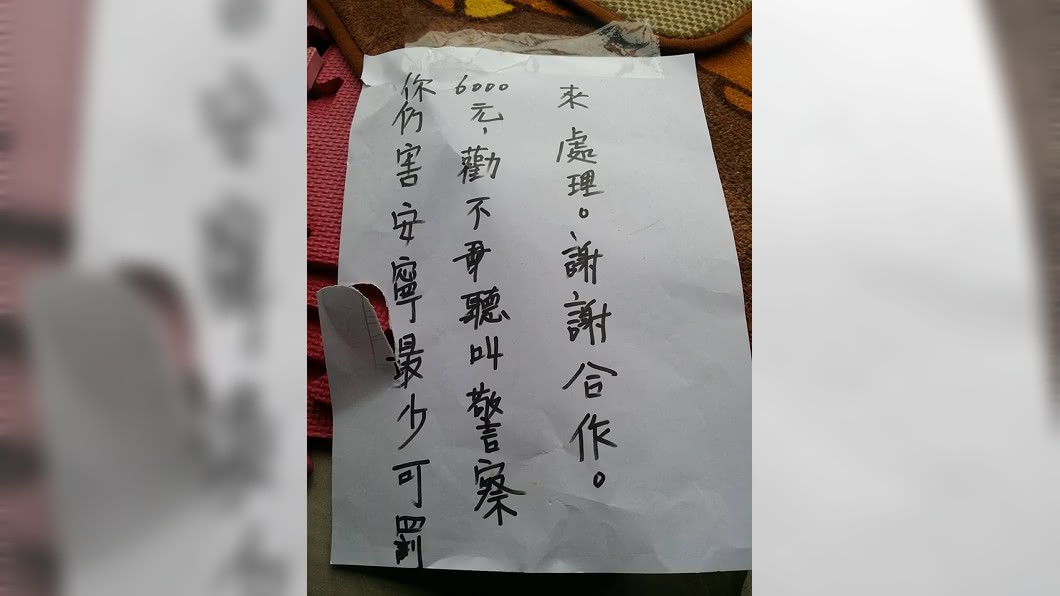 你仍害安寧最少可罰
6000元,勸不聽叫警察
來處理。謝謝合作。